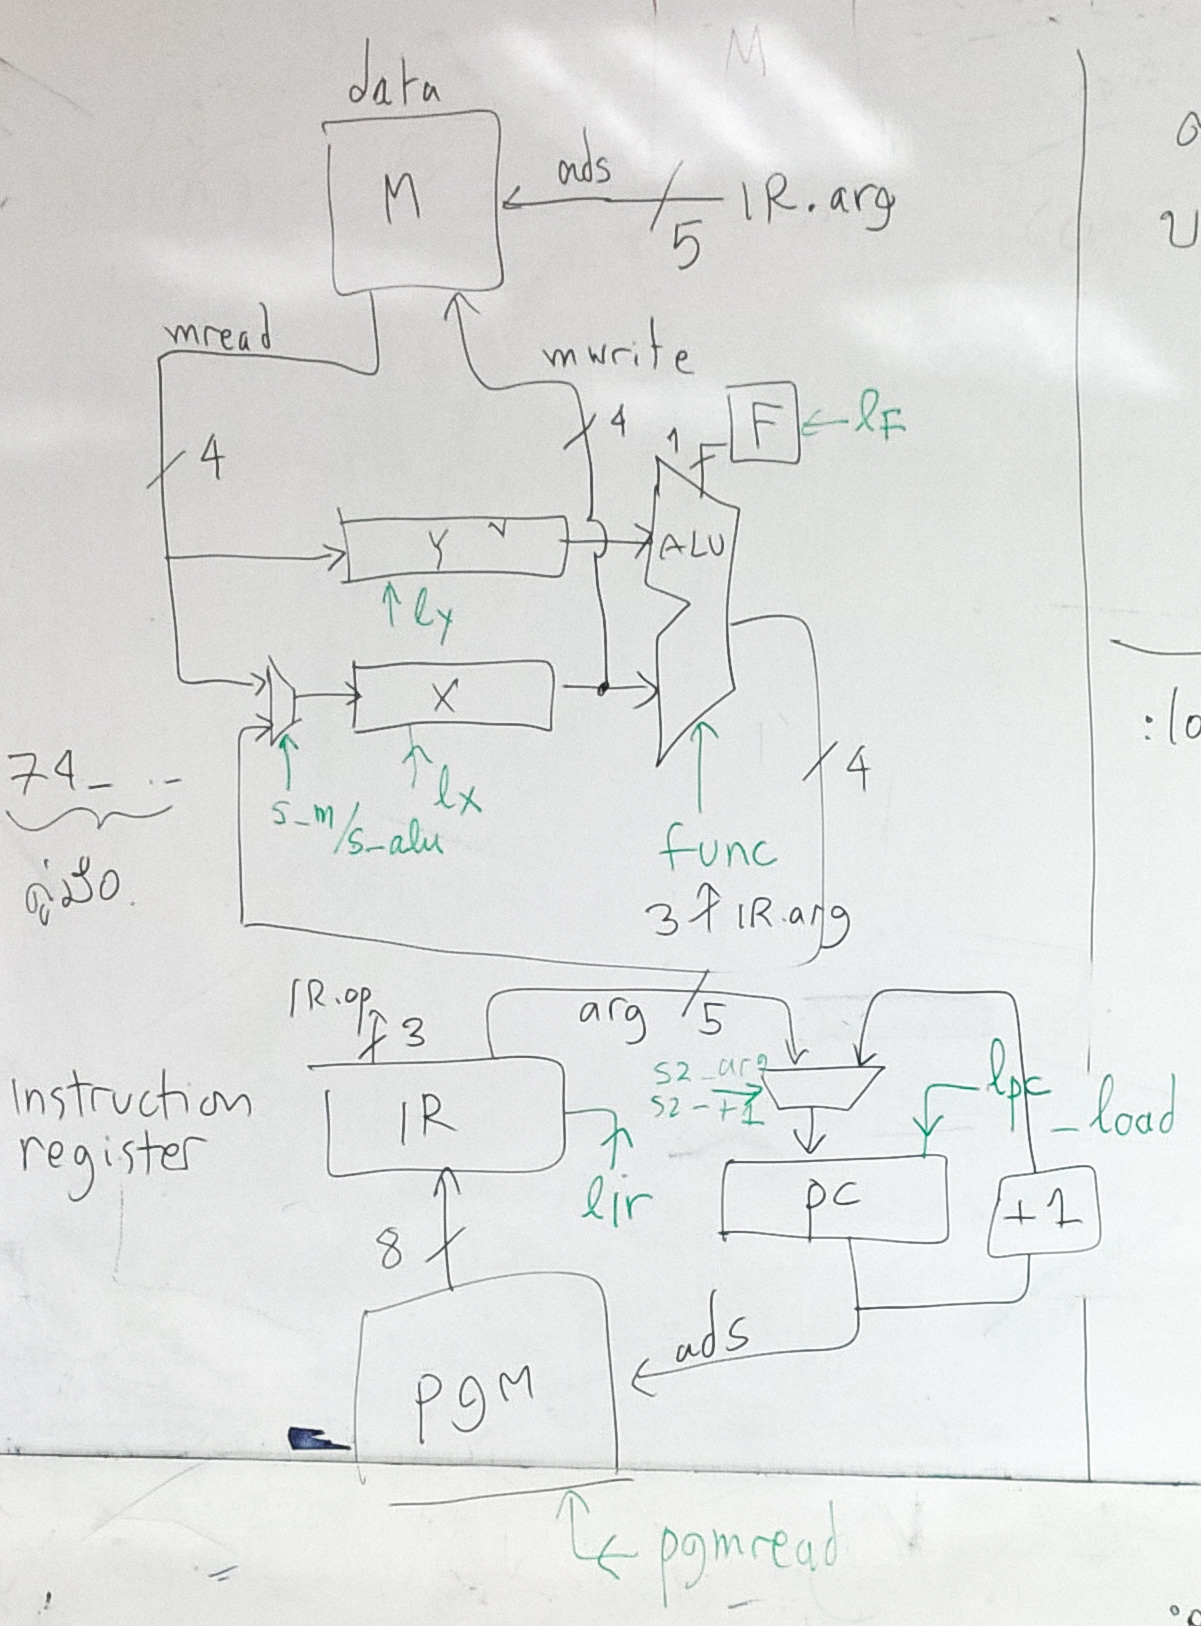 M
data
M
ads
5
IR.arg
mread
mwrite
4
4
1
F
lF
Y
ALU
ly
X
4
74_ ...
s_m/s_alu
lx
func
3 IR.arg
IR.op
3
arg
5
s2_arg
s2_+1
lpc_load
Instruction
register
IR
lir
PC
+1
8
ads
pgm
pgmread